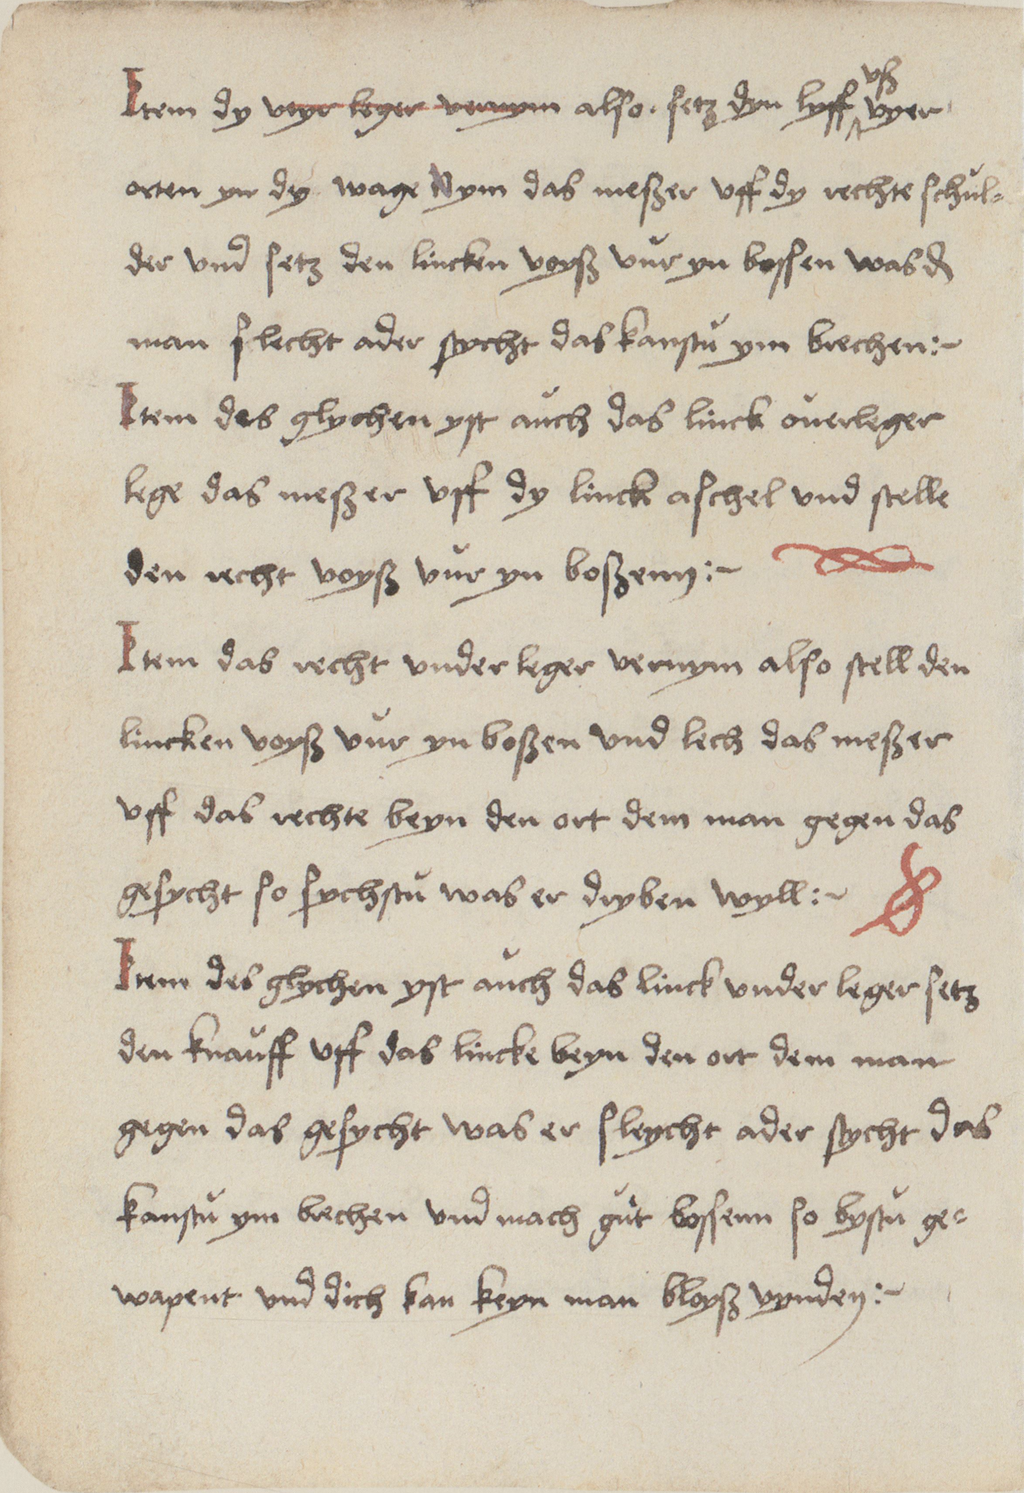 Item dy vyyr leger vernym also. setz dyn lyff vß vyer
orten yn dy wage Nym das meßer vff dy rechte schul-
der vnd setz den lincken voyß vur yn bossen was d
man slecht ader stycht das kanstu ym brechen:~
Item des glychen yst auch das linck ouerleger
lege das meßer vff dy linck aschel vnd stelle
den recht voyß vur yn boßenn:~
Item das recht vnder leger vernym also stell den
lincken voyß vur yn boßen vnd lech das meßer
vff das rechte beyn den ort dem man gegen das
gesycht so sychstu was er dryben wyll:~
Item des glychen yst auch das linck vnder leger setz
den knauff vff das lincke beyn den ort dem man
gegen das gesycht was er sleycht ader stycht das
kanstu ym brechen vnd mach gut bossenn so bystu ge-
wapent vnd dich kan keyn man bloyß vynden:~